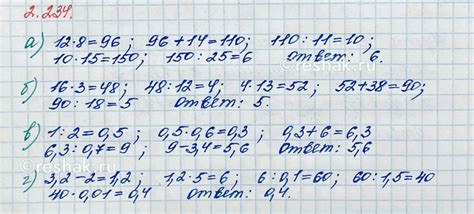 2.234.
а) 12·8=96; 96+14=110; 110:11=10;
10·15=150; 150:25=6 ответ: 6.
б) 16·3=48; 48:12=4; 4·13=52; 52+38=90;
90:18=5 ответ: 5.
в) 1:2=0,5; 0,5·0,6=0,3; 0,3+6=6,3
6,3:0,7=9; 9-3,4=5,6 ответ: 5,6
г) 3,2-2=1,2; 1,2·5=6; 6:0,1=60; 60:1,5=40
40·0,01=0,4 ответ: 0,4.